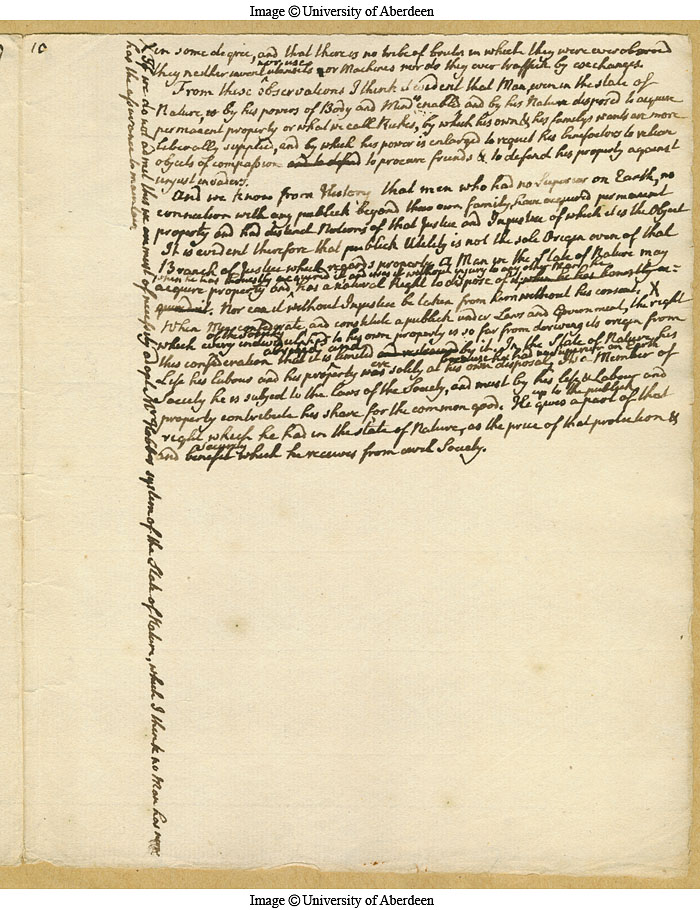 Image © University of Aberdeen
10
in some degree, and that there is no tribe of brutes in which they were ever observed
nor use
they neither invent utensils or Machines nor do they ever traffick by exchanges.
From these observations I think it evident that Man, even in the state of
Nature, is by his powers of Body and Mind enabled and by his Nature disposed to acquire
permanent property or what we call Riches, by which his own & his familys wants are more
liberally supplied, and by which his power is enlarged to requit his benefactors to relieve
objects of compassion and to defend to procure friends & to defend his property against
unjust invaders.
And we know from History that men who had no Superior on Earth, no
connection with any publick beyond their own family, have acquired permanent
property and had distinct Notions of that Justice and Injustice of which it is the Object
It is evident therefore that publick Utility is not the sole Origin even of that
Branch of Justice which regards property. A Man in the State of Nature may
when he has honestly acquired it and uses it without injury to any other Man
acquire property and has a natural Right to dispose of it he has honestly ac-
quired it. Nor can it without Injustice be taken from him without his consent. X
When Men confederate, and constitute a publick under Laws and Government, the right
of the Society
which every individual had to his own property is so far from deriving its origin from
this confederation that it is limited and restrained by it. In the State of Nature his
because he had no superior on Earth
Life his Labour and his property were solely at his own disposal. As a Member of
Society he is subject to the laws of the Society, and must by his Life & Labour and
up to the publick
property contribute his share for the common good. He gives a part of that
right which he had in the state of Nature, as the price of that protection &
security
and benefit which he receives from civil Society.
X If we do not admit this we are must of necessity adopt Mr Hobbes system of the State of Nature, which I think no Man has now
has the assurance to maintain
Image © University of Aberdeen